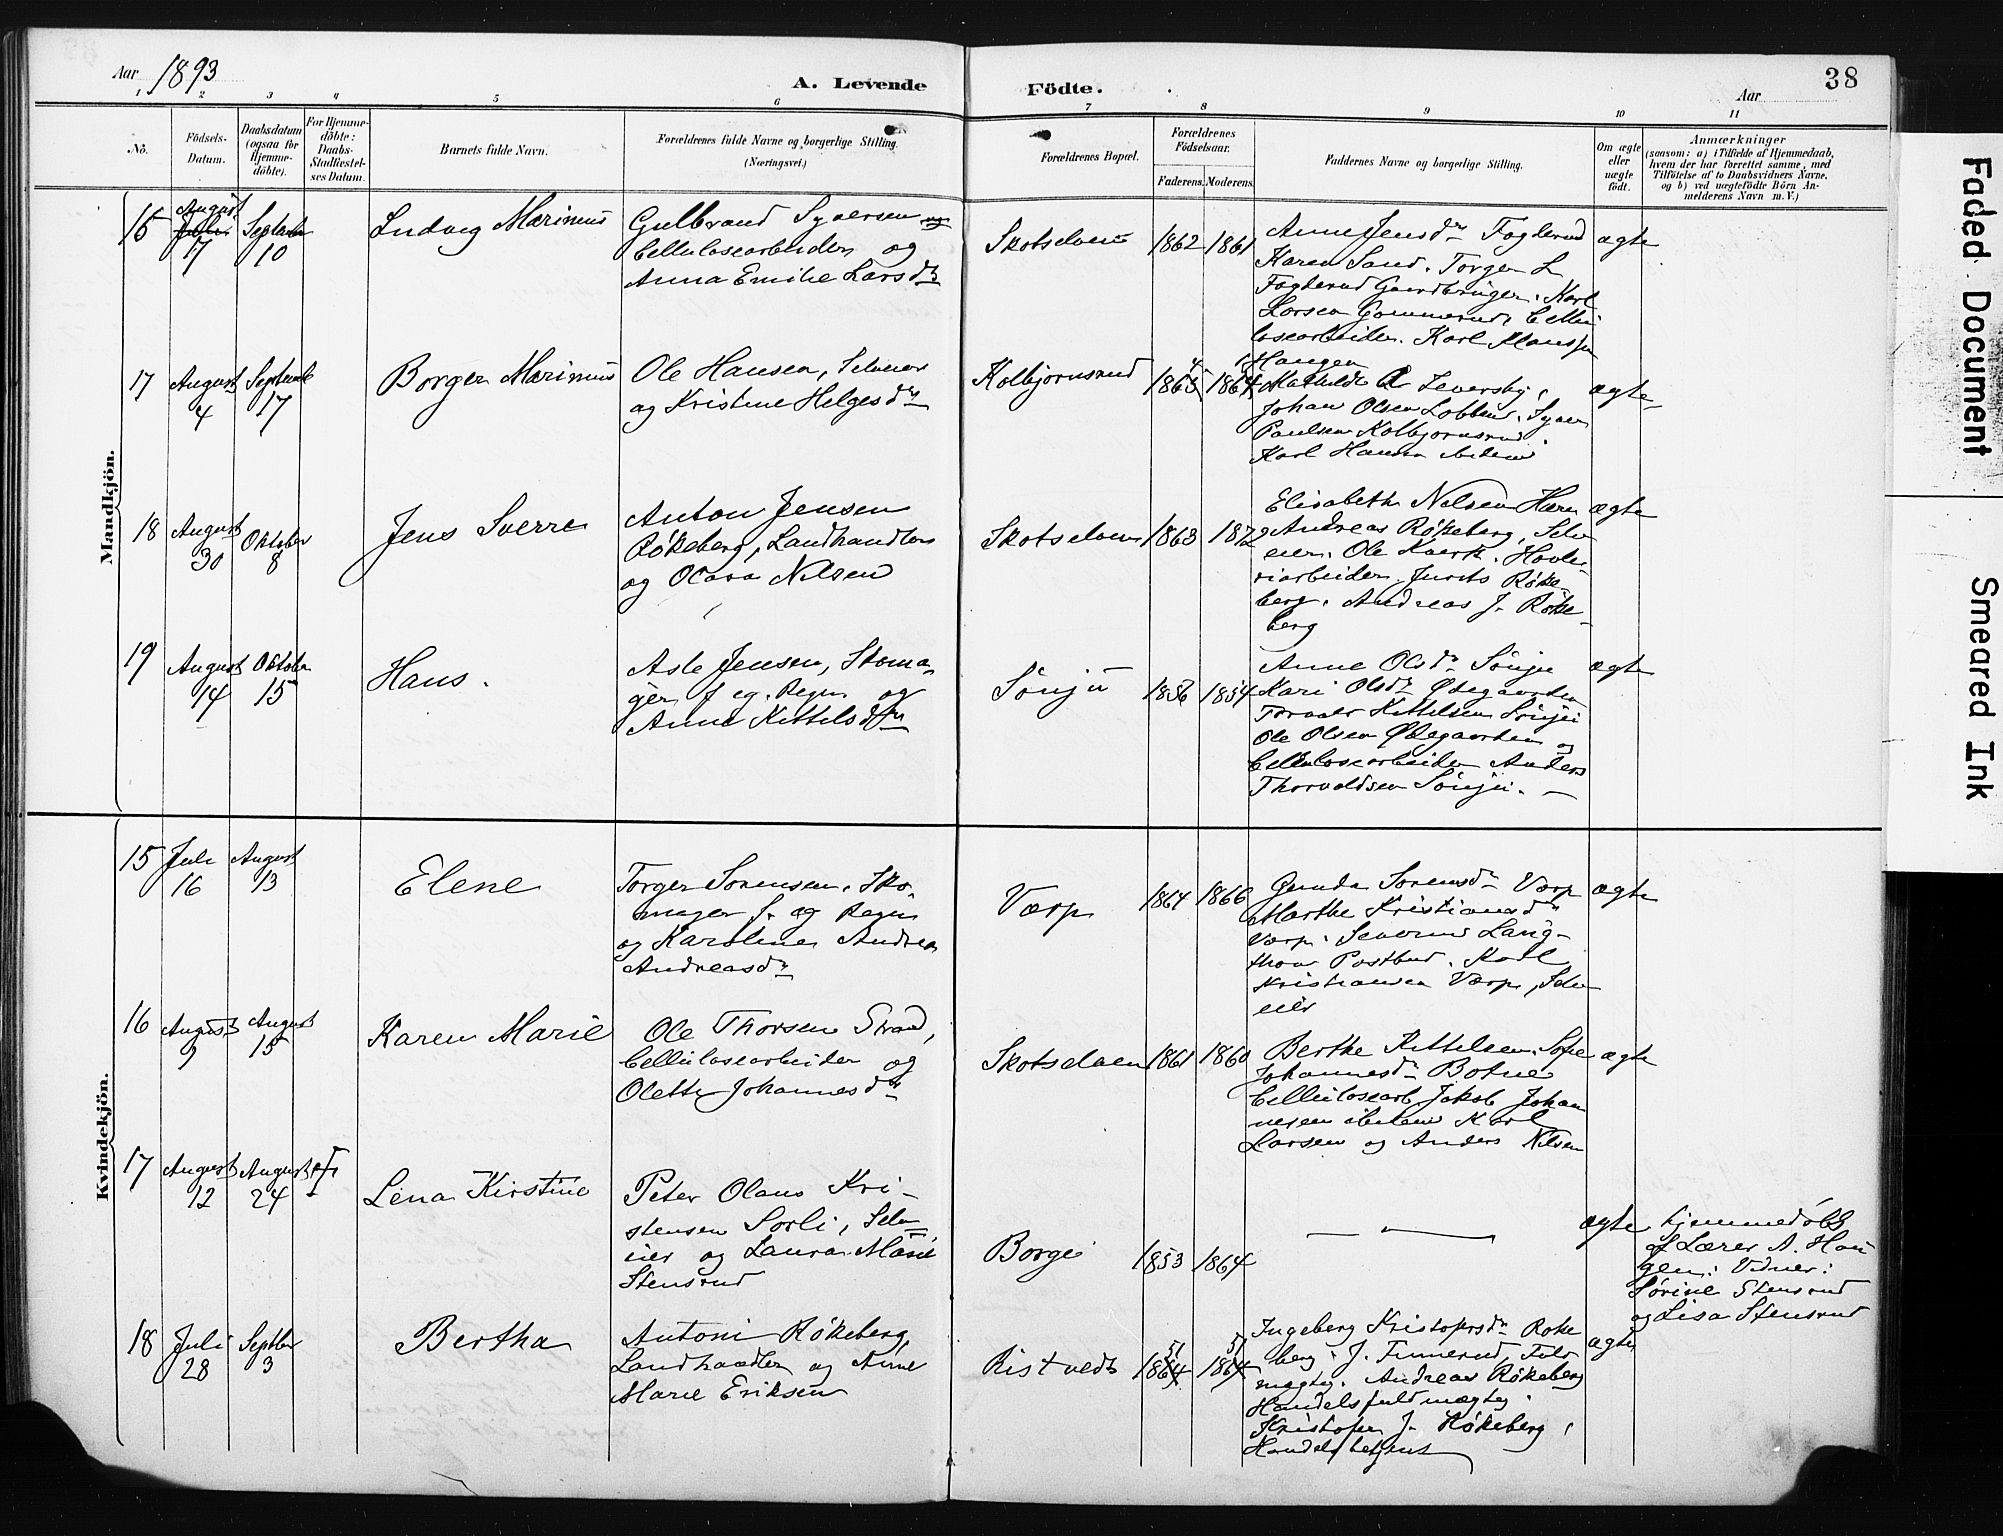 Aar 1893
A. Levende Födte.
38
Aar
1 2 3 4 5 6 7 8 9 10 11
No.
Födsels-Datum.
Daabsdatum (ogsaa for Hjemme-döbte).
For Hjemme-döbte: Daabs-Stadfæstel-ses Datum.
Barnets fulde Navn.
Forældrenes fulde Navne og borgerlige Stilling. (Næringsvei.)
Forældrenes Bopæl.
Forældrenes Födselsaar.
Faderens. Moderens.
Faddernes Navne og borgerlige Stilling.
Om ægte eller uægte födt.
Anmærkninger
(saasom: a) i Tilfælde af Hjemmedaab,
hvem der har forrettet samme, med
Tilföielse af to Daabsvidners Navne,
og b) ved uægtefödte Börn An-
melderens Navn m. V.)
Mandkjön.
16 August 7 September 10 Ludvig Marinius
Gulbrand Syversen
Cellulosearbeider og
Anna Emilie Larsdr
Skotselven 1862 1861
Anne Jensdr Fogderud
Karen Sand. Torger L
Fogderud Gaardbruger. Karl
Larsen Gommerud, Cellu
losearbeider. Karl Hansen
Haugen
ægte
17 August 4 September 17 Borger Marinius
Ole Hansen, Selveier
og Kristine Helgesdr
Kolbjørnsrud 1865 1864
Mathilde Leversby,
Johan Olsen Lobben. Syver
Paulsen Kolbjørnsrud.
Karl Hansen ibidem
ægte
18 August 30 Oktober 8 Jens Sverre
Anton Jensen
Røkeberg, Landhandler
og Olava Nilsen
Skotselven 1863 1872
Elisabeth Nilsen Hærn
Andreas Røkeberg, Selv
eier. Ole Kverk. Høvle-
riarbeider. Jurits Røke-
berg. Andreas J. Røke-
berg
ægte
19 August 14 Oktober 15 Hans.
Asle Jensen, Skoma-
ger f eg. Regn og
Anne Kittelsdtr
Sönju 1856 1854
Anne Olsdr Sönju
Kari Olsdr Ødegaarden
Torvald Kittelsen Sönjui
Ole Olsen Ødegaarden og
Celluloseearbeider Anders
Thorvaldsen Sönjui.
ægte
Kvindekjön.
15 Juli 16 August 13 Elene
Torger Sorensen. Sko-
mager f. eg Regn
og Karoline Andrea
Andreasdr
Værp 1864 1866
Gunda Sorensdr Værp
Marthe Kristiansdr
Værp. Severin Lang-
thon Postbud. Karl
Kristiansen Værp, Selv
eier
ægte
16 August 9 August 15 Karen Marie
Ole Thorsen Strand,
Celluloseearbeider og
Olette Johannesdr
Skotselven 1861 1860
Berthe Kittelsen. Sofie
Johannesdr Botne
Cellulosearb. Jakob Johan
nesen ibidem Karl
Larsen og Anders Nilsen
ægte
17 August 12 August 24 Lena Kirstine
Peter Olaus Kri-
stensen Sorli, Selv
eier og Laura Marie
Stensrud
Borge 1853 1864
ægte
hjemmedöbt
af Lærer A. Hau
gen: Vidner:
Sörine Stensrud
og Lisa Stensrud
18 Juli 28 Septber 3 Bertha
Antoni Røkeberg,
Landhandler og Anne
Marie Eriksen
Ristvedt 1864 51 1864 51
Ingeborg Kristopersdr Roke
berg. J. Finnerud Fuld
mægtig. Andreas Røkeberg
Handelsfuldmægtig.
Kristofer J. Røkeberg,
Handelsbetjent
ægte
Faded Document
Smeared Ink